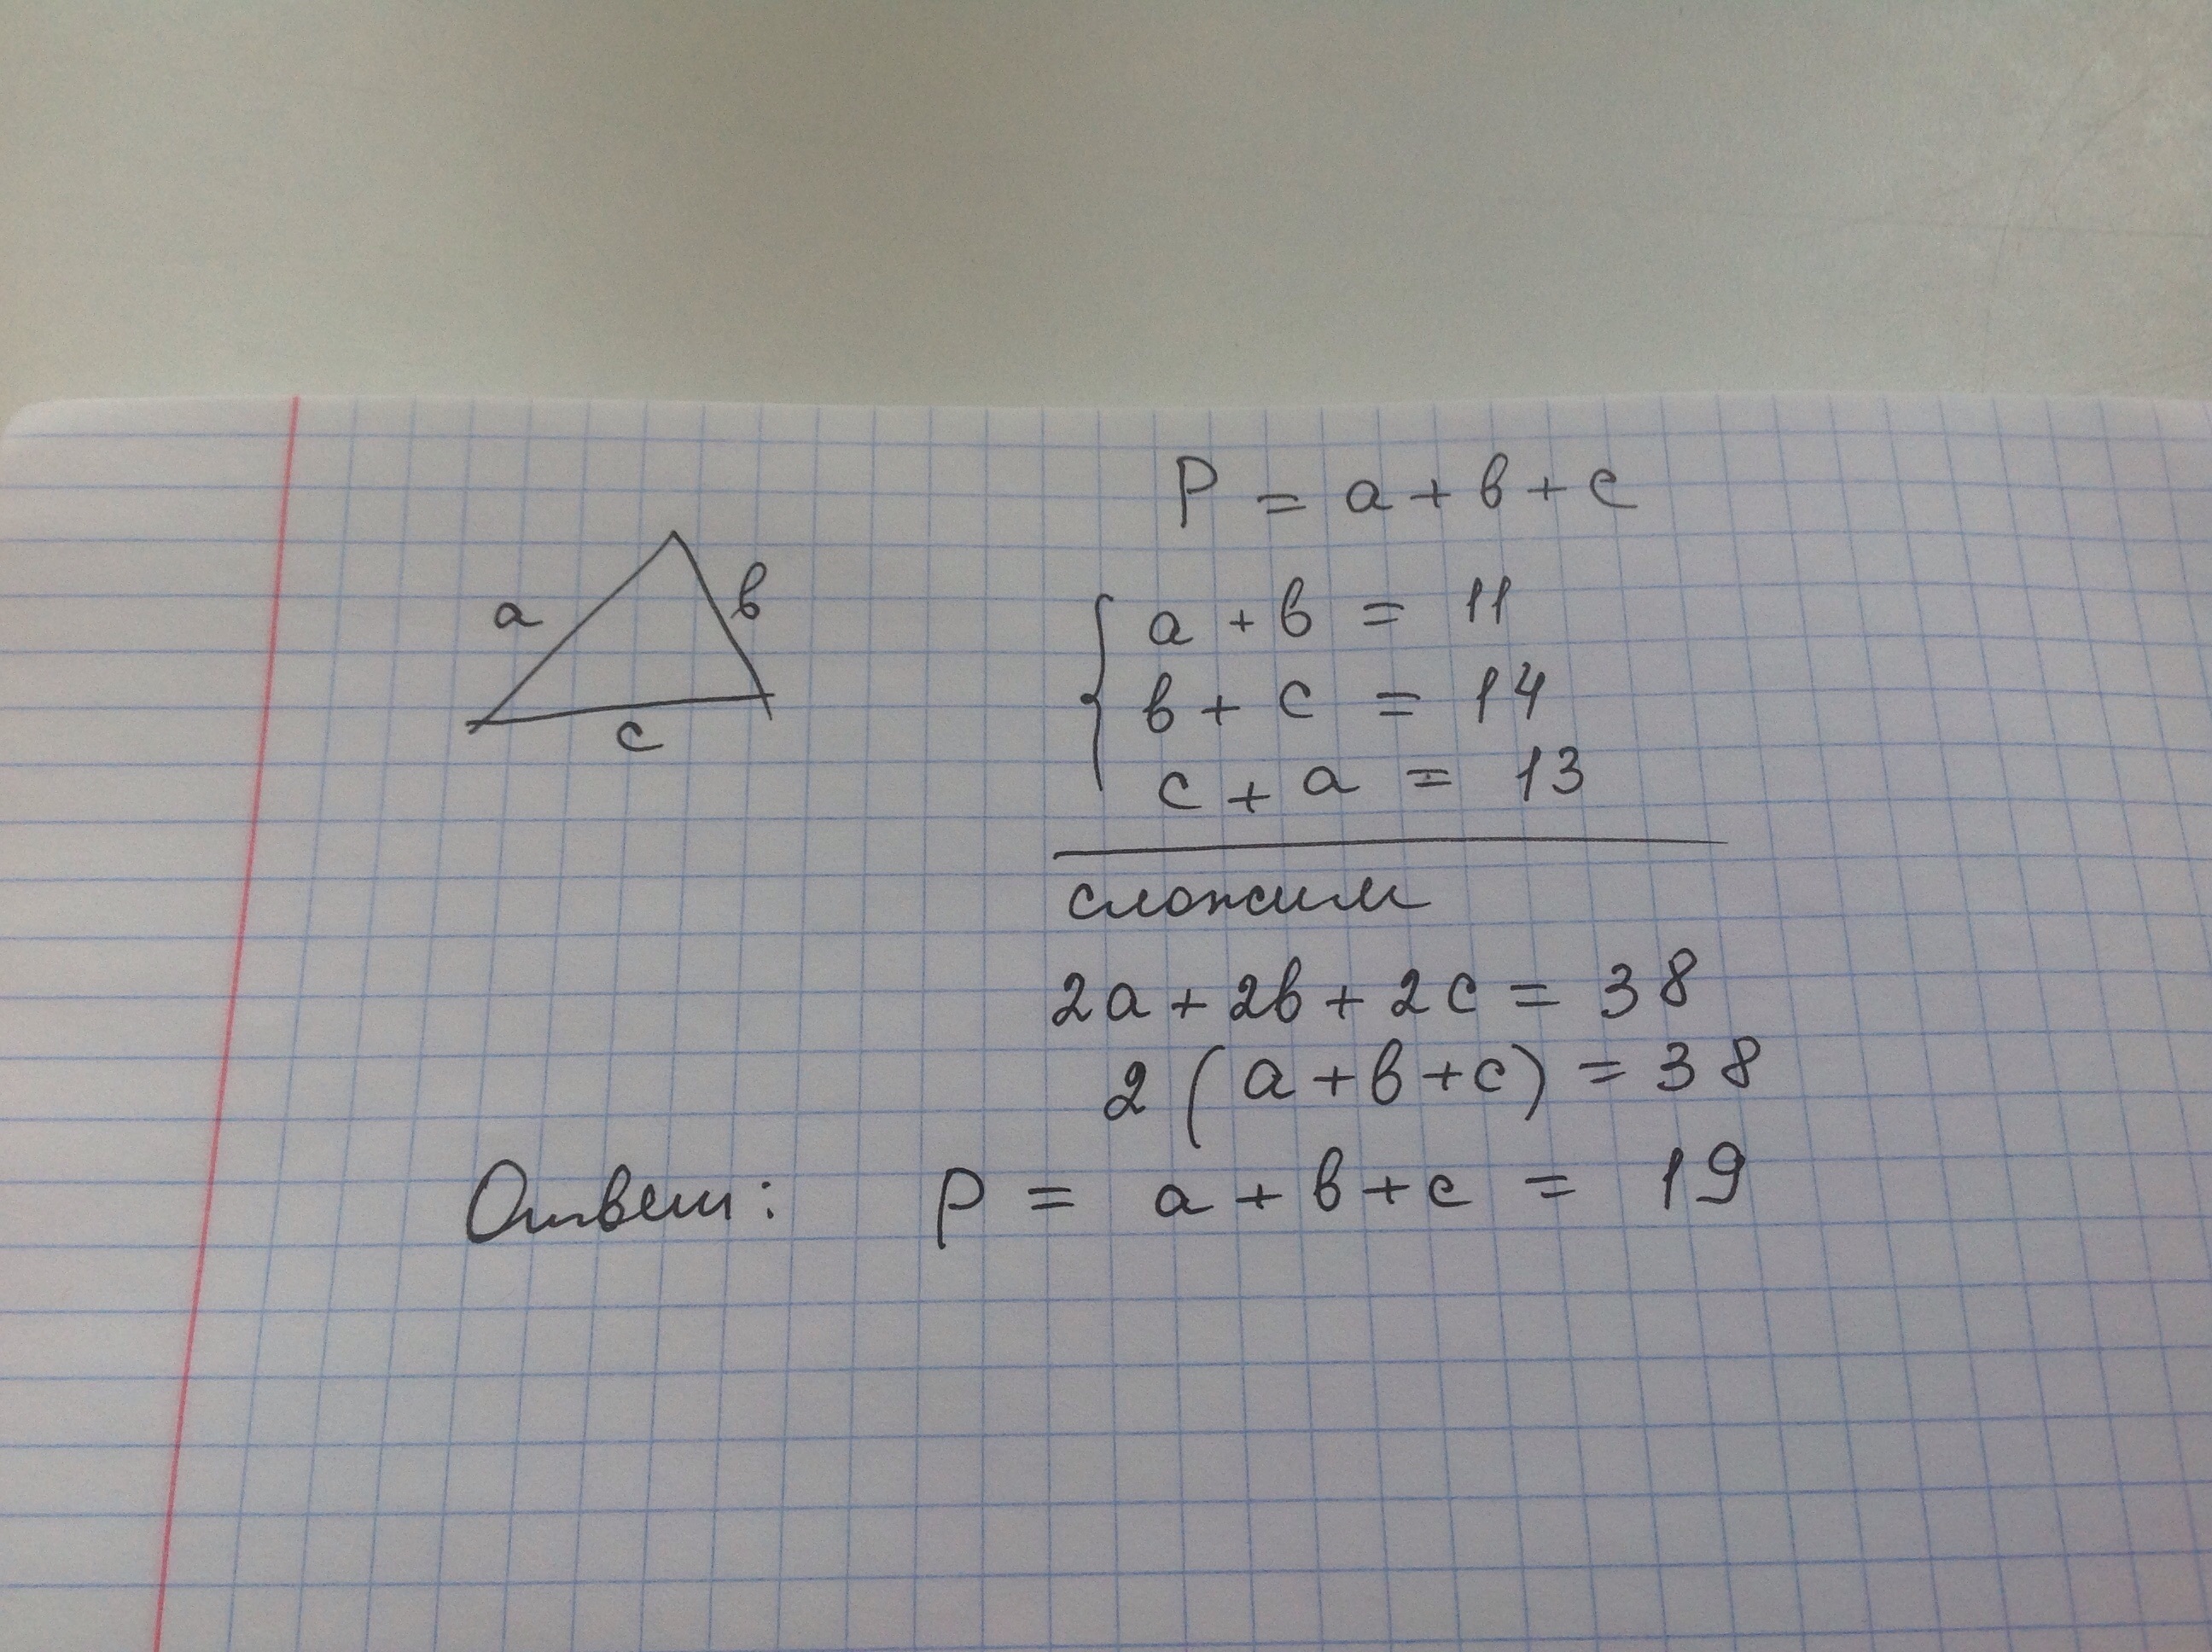 P = a + b + c
a
b
c
a + b = 11
b + c = 14
c + a = 13
сложим
2a + 2b + 2c = 38
2 ( a + b + c ) = 38
Ответ: P = a + b + c = 19